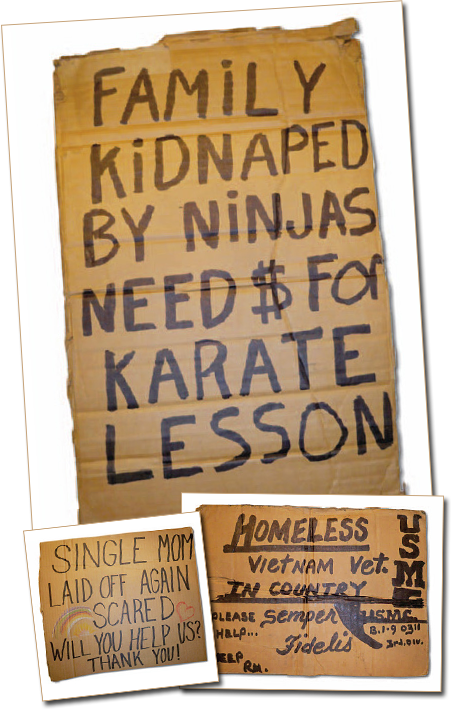 FAMiLY
KiDNAPED
BY NiNJAS
NEED $ FOr
KARATE
LESSON
SINGLE MOM
LAID OFF AGAIN
SCARED
WILL YOU HELP US?
THANK YOU!
HOMELESS
VIETNAM Vet.
IN COUNTRY
USMC
PLEASE Semper
HELP... Fidelis
USMC
B.1-9 0311
3rd.Div.
HELP
RM.